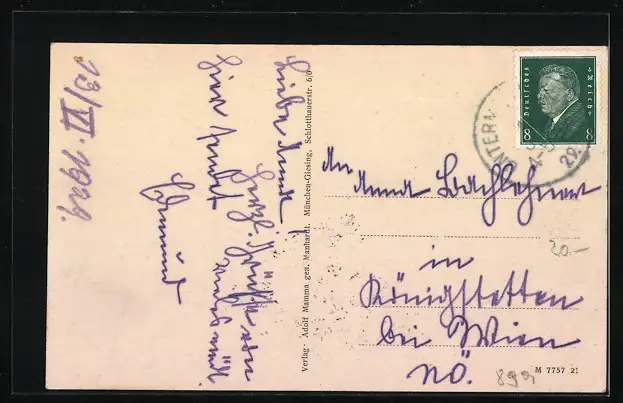 13/VI. 1929.
Liebe Anna!
Herzl. Grüße von
hier sendet
Edmund
Verlag: Adolf Mamma gen. Manhardt, München-Giesing, Schlotthauerstr. 6/0
Deutsches Reich
8 8
UNTERA
4-5
29.
An
Anna
in
Königstetten
bei Wien
NÖ.
20.-
M 7757 21